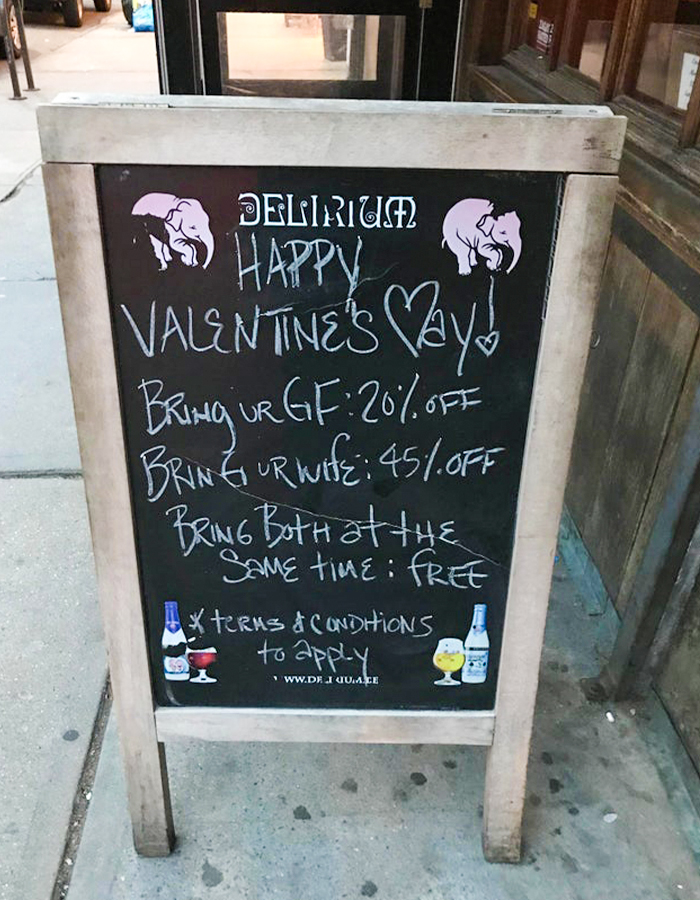 DELIRIUM
HAPPY
VALENTINE'S Day!
BRING UR GF: 20% OFF
BRING UR WIFE: 45% OFF
BRING BOTH at tHE
SAME TIME: FREE
* TERMS & CONDITIONS
to apply